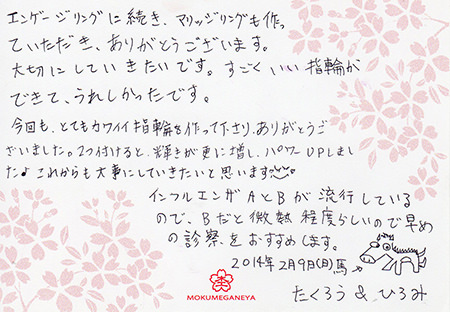 エンゲージリングに続き、マリッジリングも作っ
ていただき、ありがとうございます。
大切にしていきたいです。すごくいい指輪が
できて、うれしかったです。
今回も、とてもカワイイ指輪を作って下さり、ありがとうご
ざいました。2つ付けると、輝きが更に増し、パワーUPしまし
た♪これからも大事にしていきたいと思います
インフルエンザAとBが流行している
ので、Bだと微熱程度らしいので早め
の診察をおすすめします。
2014年2月9日(日)馬→
たくろう & ひろみ
MOKUMEGANEYA